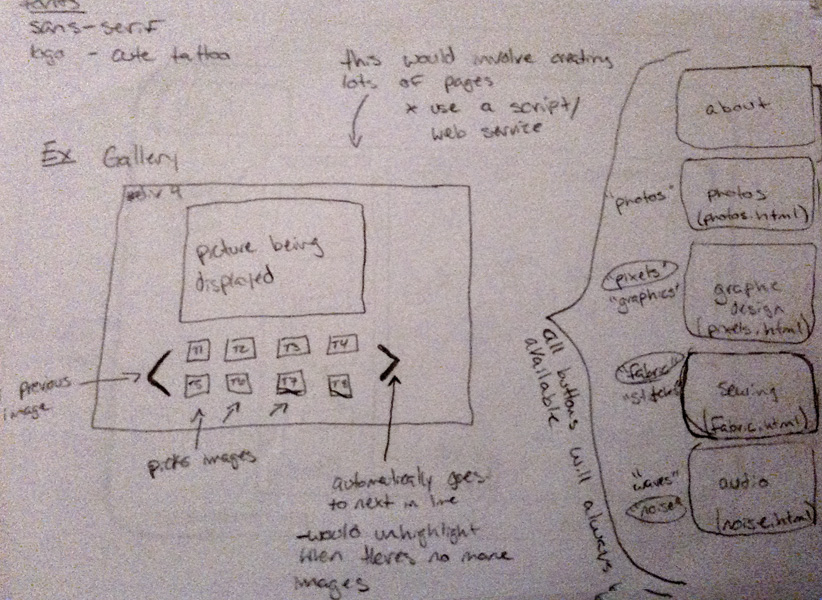 sans-serif
logo - cute tattoo
this would involve creating
lots of pages
* use a script/
web service
Ex Gallery
picture being
displayed
T1 T2 T3 T4
T5 T6 T7 T8
previous
image
picks images
automatically goes
to next in line
-would unhighlight
when theres no more
images
all buttons will always
available
about
"photos"
photos
(photos.html)
"pixels"
"graphics"
graphic
design
(pixels.html)
"fabric"
sewing
(fabric.html)
"waves"
"noise"
audio
(noise.html)